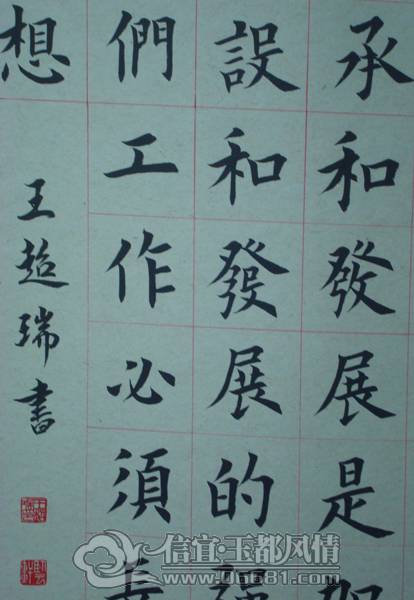 承和發展是
設和發展的
們工作必須
想
王超瑞書
信宜·玉都风情